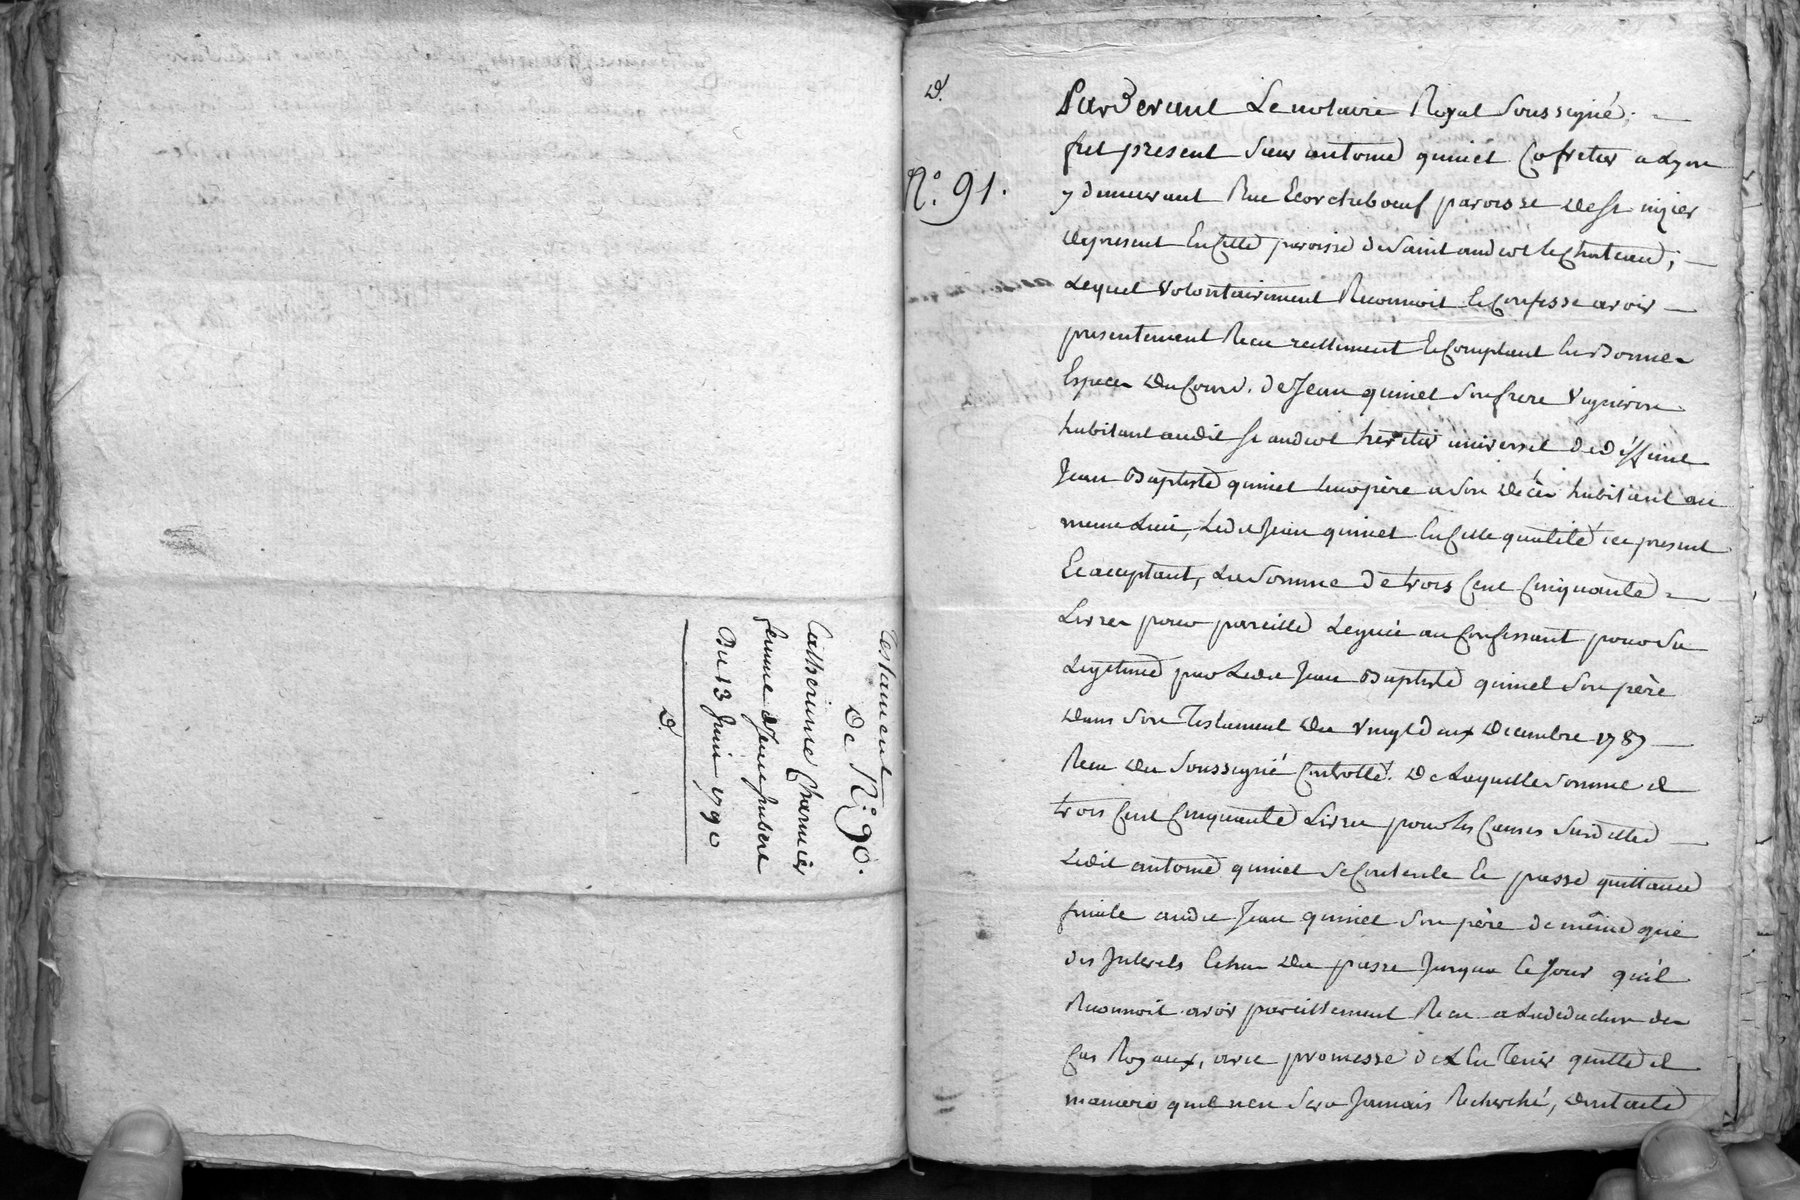 Testament
De N.° 90.
Catherinne Charnier
femme de Jean Jubere
Du 13 Juin 1790
D.
D.
N.° 91.
Pardevant Le notaire Royal Soussigné;
fut present Sieur antoine quinet Cofretier a Lyon
y demeurant Rue Ecorcheboeuf paroisse De St nizier
De present En Cette paroisse de Saint andeol le Chateau;
Lequel volontairement Reconnoit Et Confesse avoir
presentement Recu reellement Et Comptant En Bonnes
Especes Du Cours. de Jean quinet Son frere Vigneron
habitant audit St andeol heritier universel de deffunt
Jean Baptiste quinet Leur père a Son décès habitant au
meme Lieu, Ledit Jean quinet En Cette qualité icy present
Et acceptant, La Somme de trois Cent Cinquante
Livres pour pareille Leguée au Confessant pour Sa
Legitime par Ledit Jean Baptiste quinet Son père
Dans Son Testament Du vingt deux Decembre 1787
Recu Du Soussigné Controllé. De Laquelle Somme de
trois Cent Cinquante Livres pour les Causes Susdittes
Ledit antoine quinet Se Contente Et passe quittance
finale audit Jean quinet Son père de même que
des Interets Echus Du passé Jusqua Ce Jour quil
Reconnoit avoir pareillement Recu a La deduction des
Cas Royaux, avec promesse de L'en Tenir quitte et
maniere quil nen Sera Jamais Recherché, Dont acte